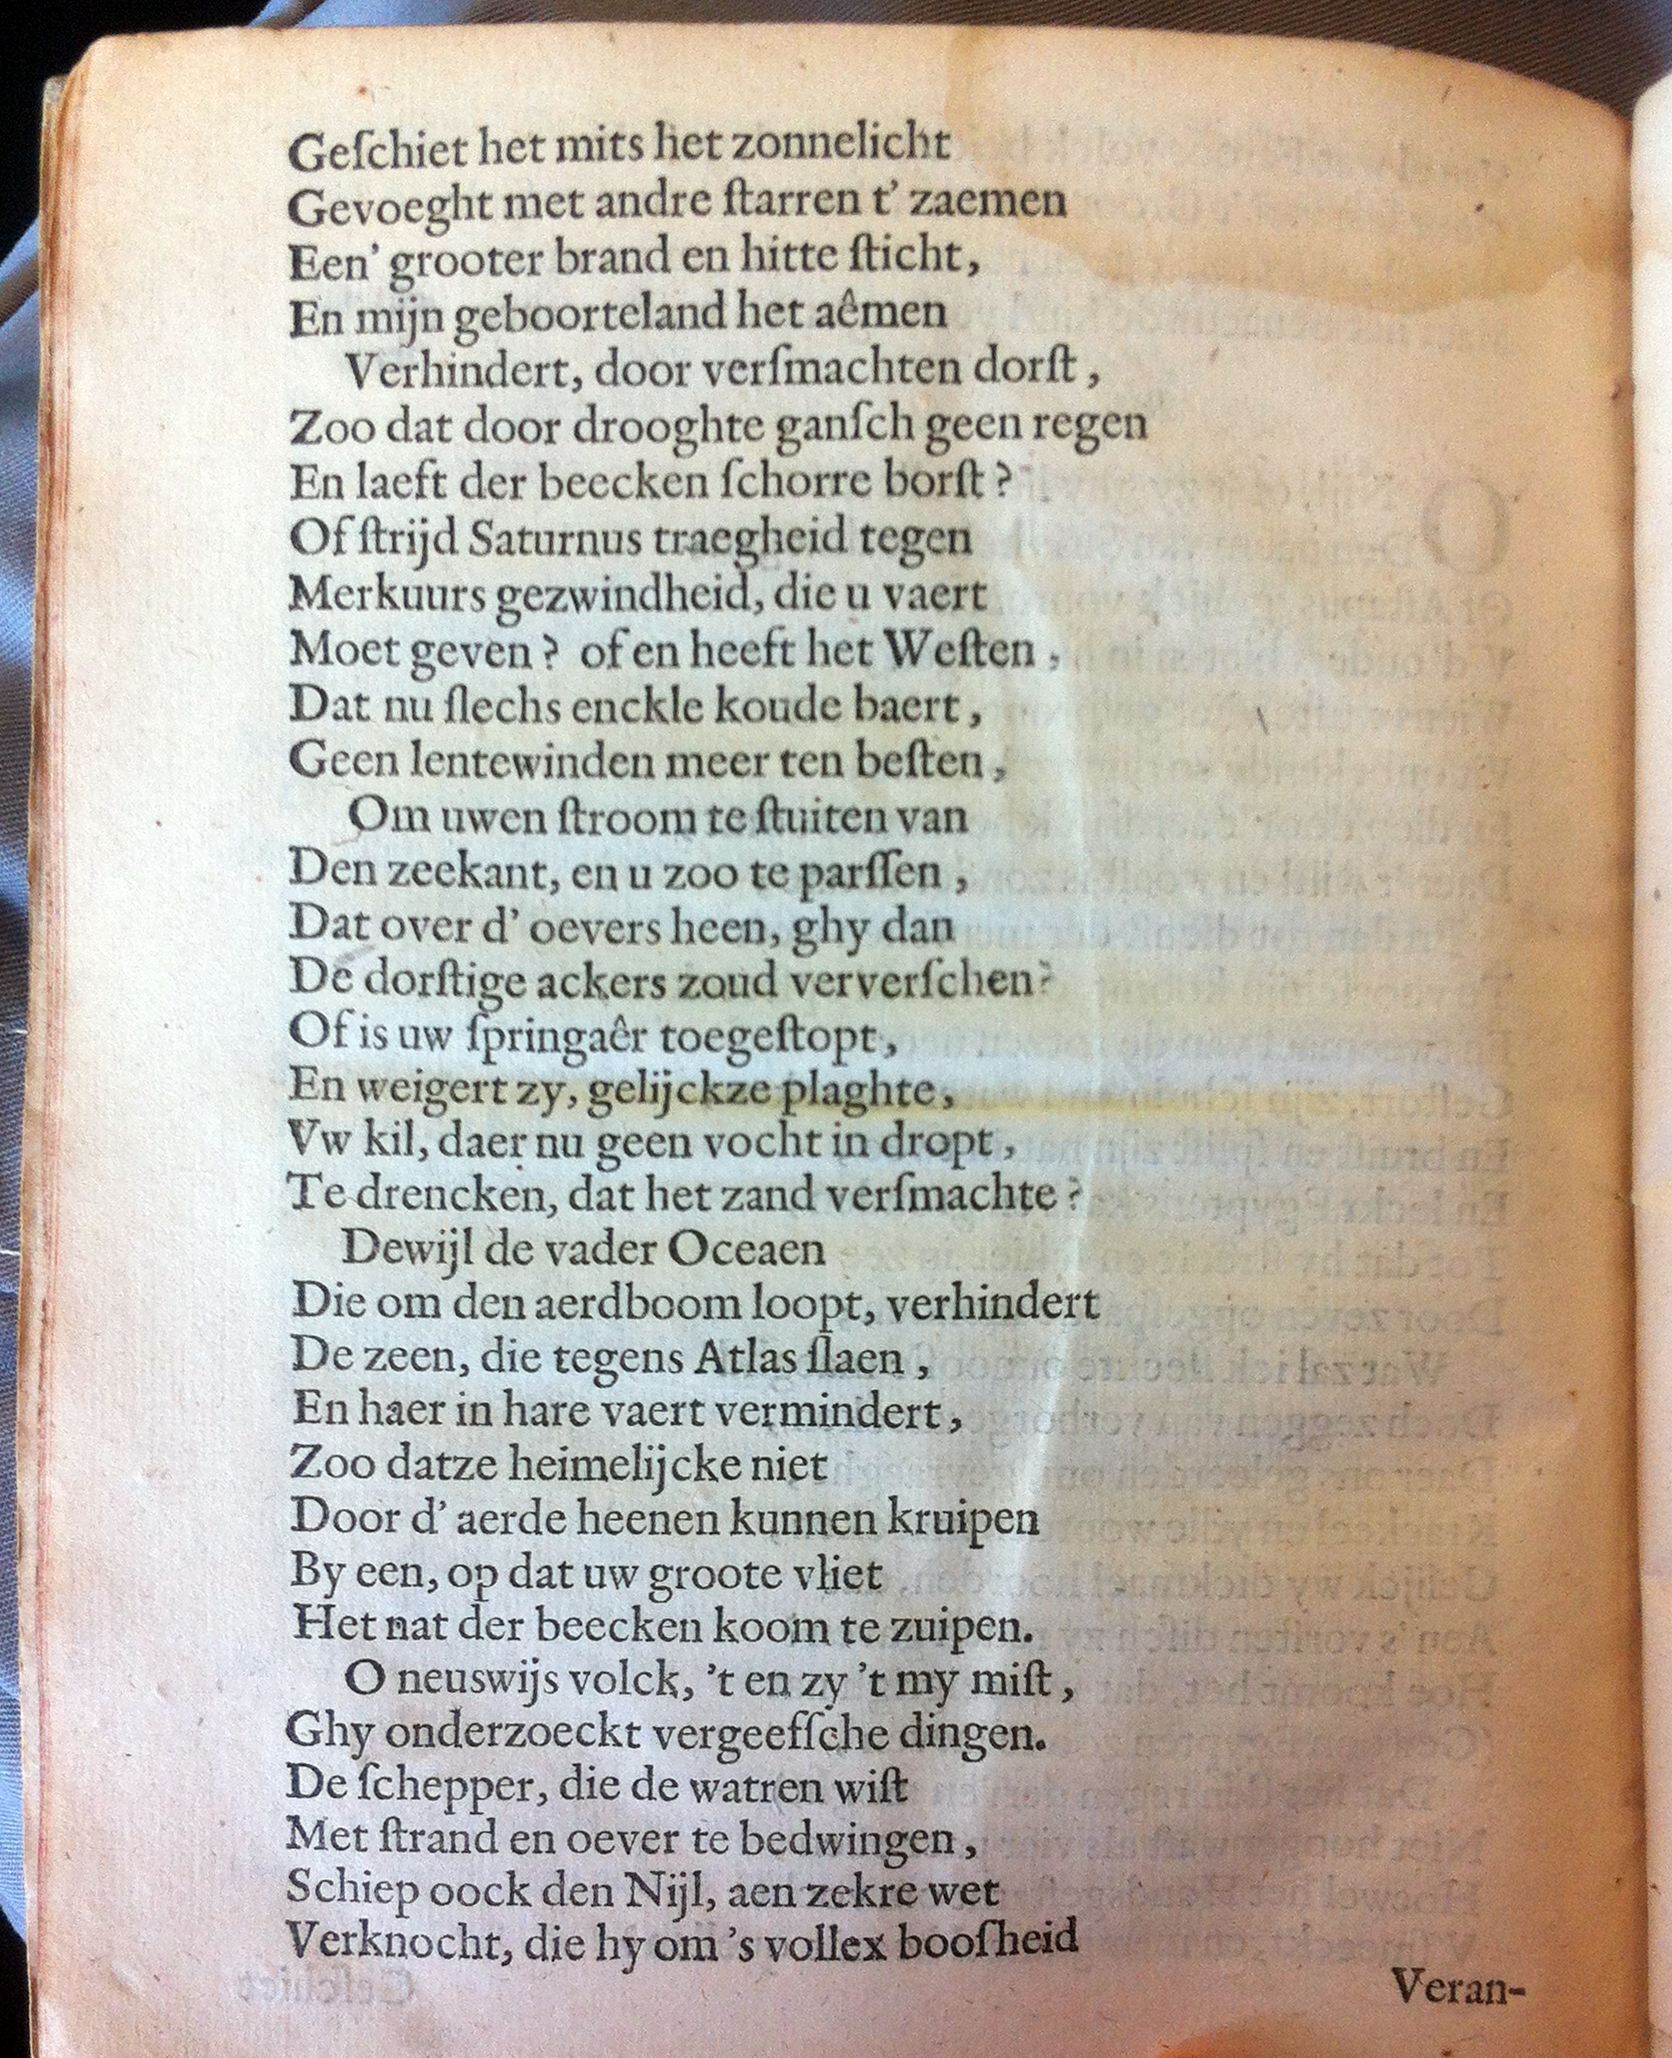 Geſchiet het mits het zonnelicht
Gevoeght met andre ſtarren t' zaemen
Een' grooter brand en hitte ſticht,
En mijn geboorteland het aêmen
Verhindert, door verſmachten dorſt,
Zoo dat door drooghte ganſch geen regen
En laeft der beecken ſchorre borſt?
Of ſtrijd Saturnus traegheid tegen
Merkuurs gezwindheid, die u vaert
Moet geven? of en heeft het Weſten,
Dat nu ſlechs enckle koude baert,
Geen lentewinden meer ten beſten,
Om uwen ſtroom te ſtuiten van
Den zeekant, en u zoo te parſſen,
Dat over d' oevers heen, ghy dan
De dorſtige ackers zoud ververſchen?
Of is uw ſpringaêr toegeſtopt,
En weigert zy, gelijckze plaghte,
Vw kil, daer nu geen vocht in dropt,
Te drencken, dat het zand verſmachte?
Dewijl de vader Oceaen
Die om den aerdboom loopt, verhindert
De zeen, die tegens Atlas ſlaen,
En haer in hare vaert vermindert,
Zoo datze heimelijcke niet
Door d' aerde heenen kunnen kruipen
By een, op dat uw groote vliet
Het nat der beecken koom te zuipen.
O neuswijs volck, 't en zy 't my miſt,
Ghy onderzoeckt vergeefſche dingen.
De ſchepper, die de watren wiſt
Met ſtrand en oever te bedwingen,
Schiep oock den Nijl, aen zekre wet
Verknocht, die hy om 's vollex booſheid
Veran-